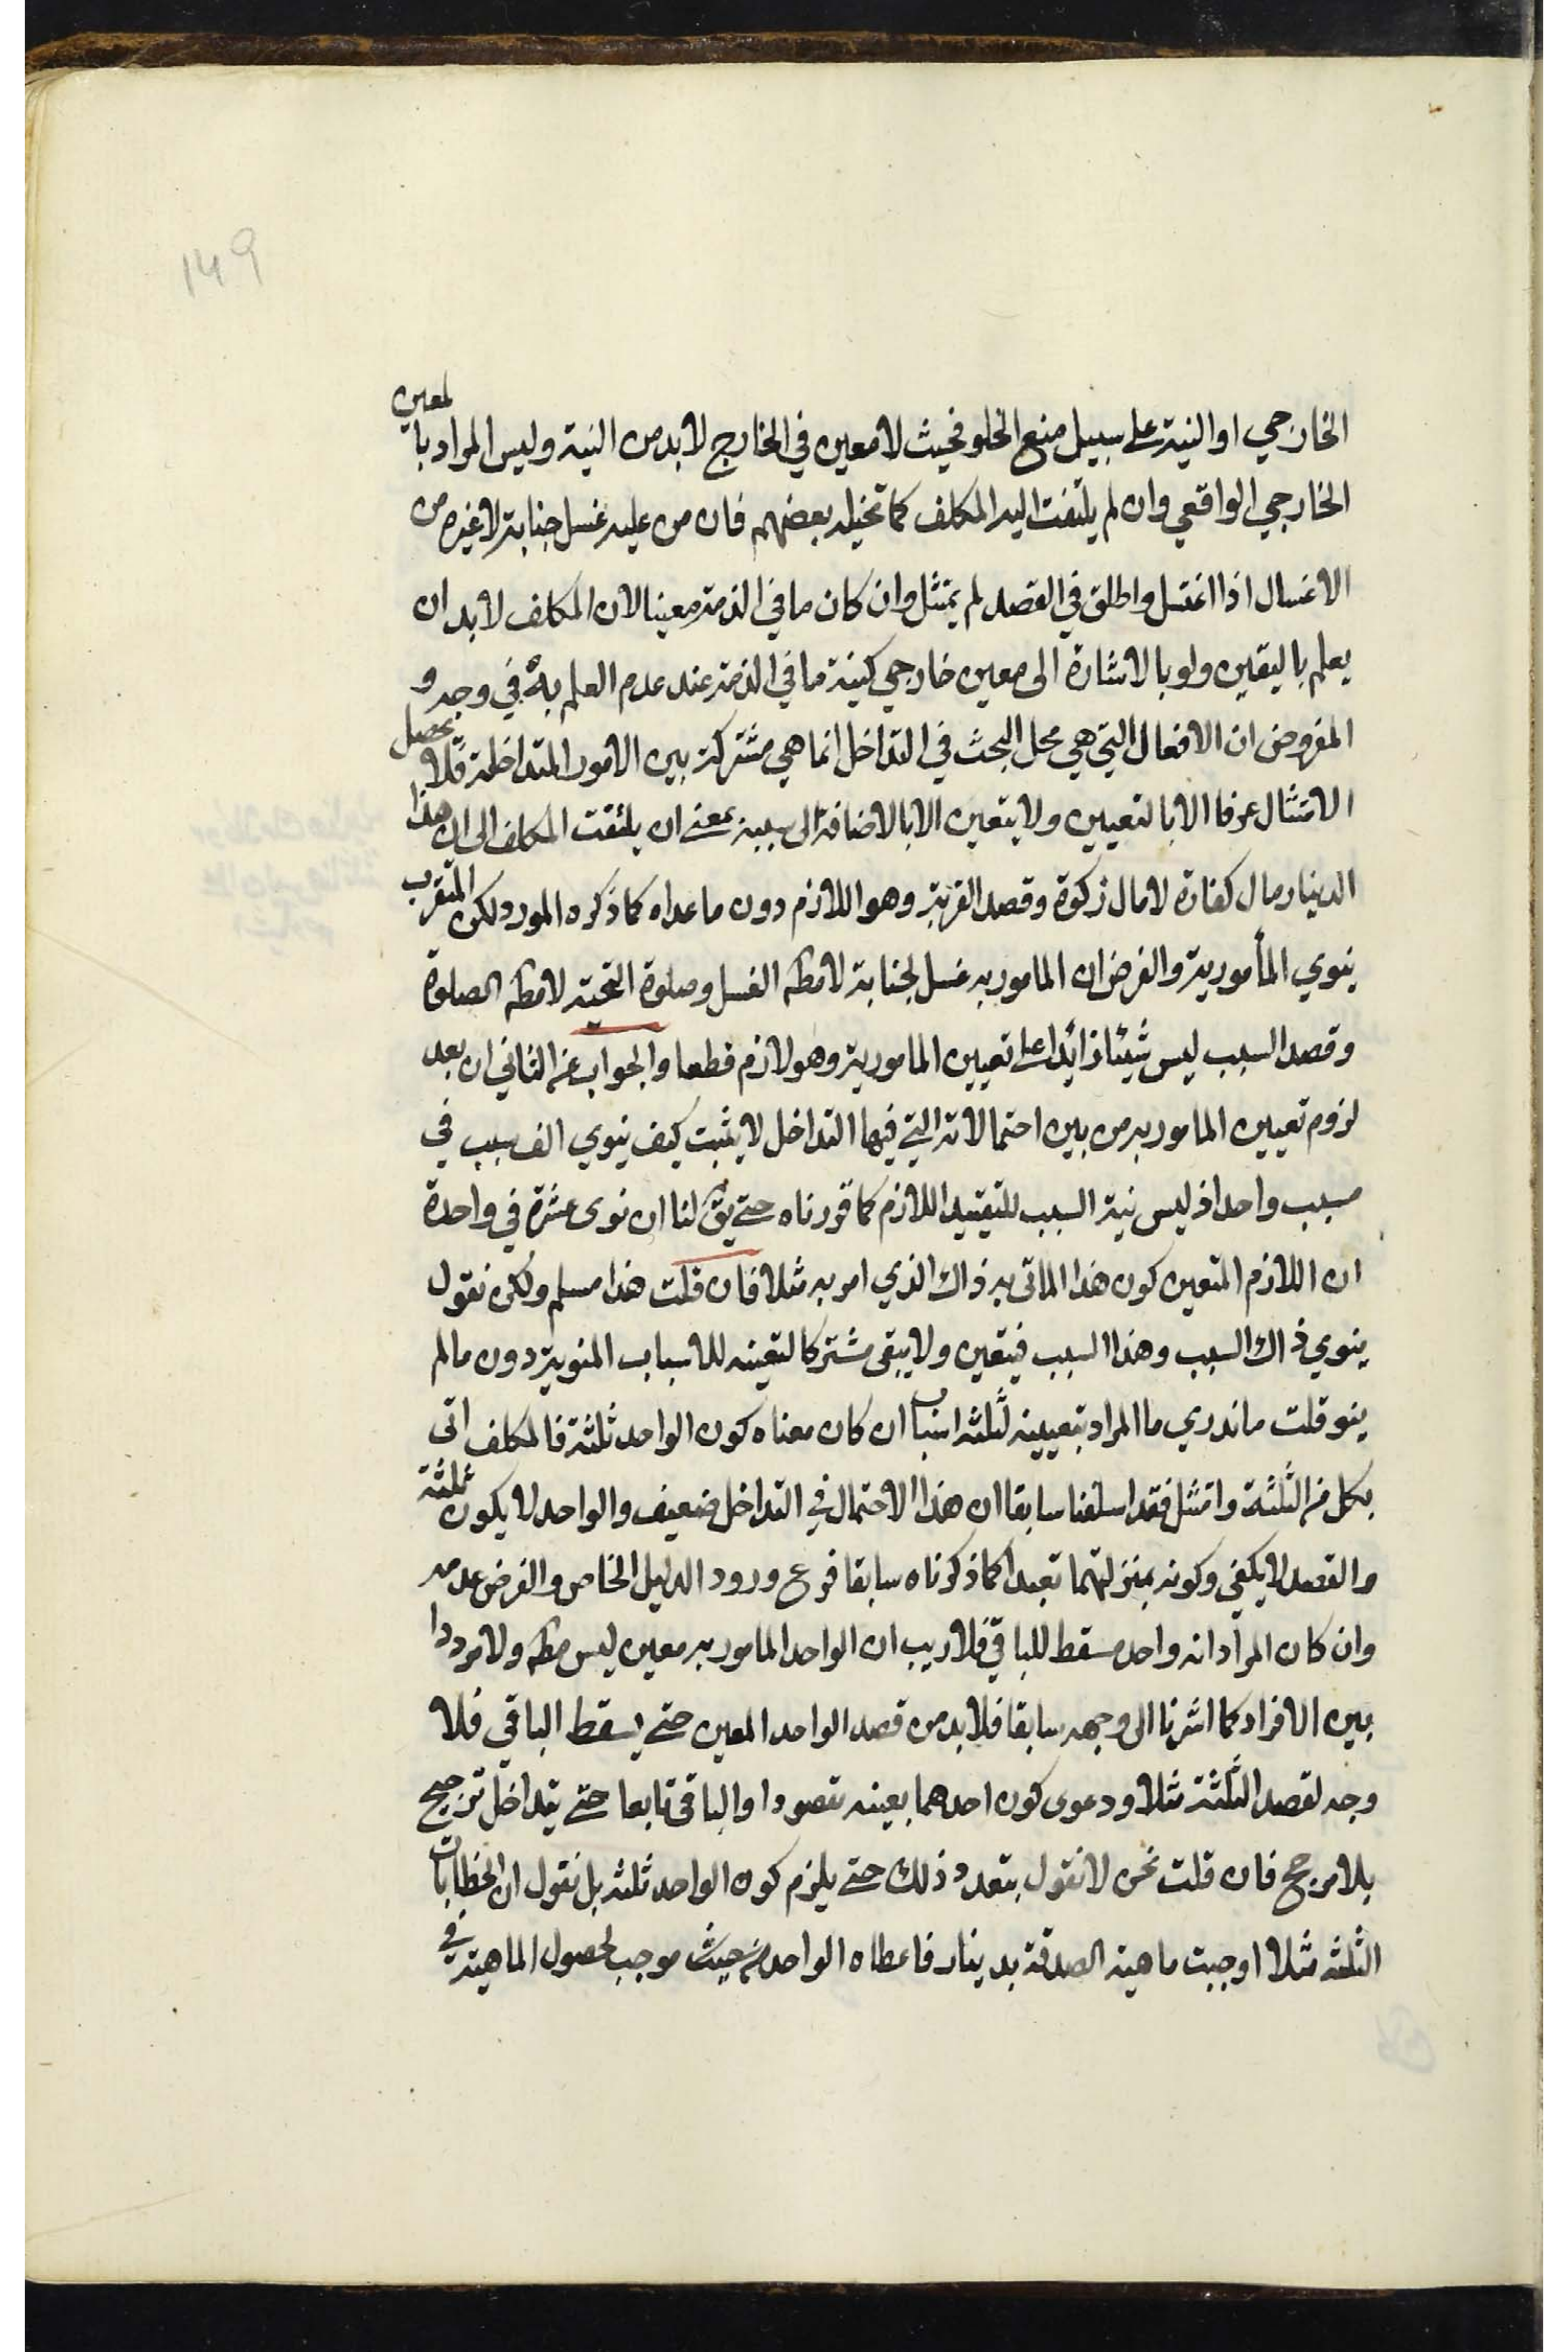 149
الخارجي او النية على سبيل منع الخلو فحيث لا معين في الخارج لا بد من النية وليس المراد بالمعين
الخارجي الواقعي وان لم يلتفت اليه المكلف كما تخيله بعضهم فان من عليه غسل جنابة لا غيره من
الاغسال اذا اغتسل واطلق في القصد لم يمتثل وان كان ما في الذمة معينا لان المكلف لا بد ان
يعلم باليقين ولو بالاشارة الى معين خارجي كنية ما في الذمة عند عدم العلم به في وجه و
المفروض ان الافعال التي هي محل البحث في التداخل انما هي مشتركة بين الامور المتداخلة فلا يحصل
الامتثال عرفا الا بالتعيين ولا يتعين الا بالاضافة الى سببه بمعنى ان يلتفت المكلف الى ان هذا
الدينار مال كفارة لا مال زكوة وقصد القربة وهو اللازم دون ما عداه كما ذكره المورد لكن المتقرب
ينوي المأمور به والفرض ان المامور به غسل لجنابة لا مطه الغسل وصلوة التحية لا مطه الصلوة
وقصد السبب ليس شيئا زائدا على تعيين المامور به وهو لازم قطعا والجواب عن الثاني ان بعد
لزوم تعيين المامور به من بين احتمالاته التي فيها التداخل لا يثبت كيف ينوي الف سبب في
مسبب واحد اذ ليس نية السبب للتقييد اللازم كما قررناه حتى يق لنا ان نوى عشرة في واحدة
ان اللازم المتعين كون هذا الماتى به ذاك الذي امر به مثلا فان قلت هذا مسلم ولكن نقول
ينوي ذاك السبب وهذا السبب فيتعين ولا يبقى مشتركا لتعينه للاسباب المنوية دون ما لم
ينو قلت ما ندري ما المراد بتعيينه لثلثه اسباب ان كان معناه كون الواحد ثلثة فالمكلف اتى
بكل من الثلثة وامتثل فقد اسلفنا سابقا ان هذا الاحتمال في التداخل ضعيف والواحد لا يكون ثلثة
والقصد لا يكفي وكونه بمنزلتهما تعبدا كما ذكرناه سابقا فرع ورود الدليل الخاص والفرض عدمه
وان كان المراد انه واحد مسقط للباقي فلا ريب ان الواحد المامور به معين ليس مطه ولا مرددا
بين الافراد كما اشرنا الى وجهه سابقا فلا بد من قصد الواحد المعين حتى يسقط الباقي فلا
وجه لقصد الثلثة مثلا ودعوى كون احدهما بعينه مقصودا والباقي تابعا حتى يتداخل ترجيح
بلا مرجح فان قلت نحن لا نقول بتعدد ذلك حتى يلزم كون الواحد ثلثه بل نقول ان الخطابات
الثلثه مثلا اوجبت ماهية الصدقة بدينار فاعطاه الواحد من حيث موجب لحصول الماهية في